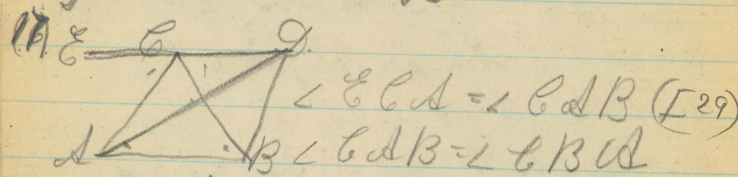 17)
E C D
∠ECA = ∠CAB (I 29)
A B
∠CAB = ∠CBA